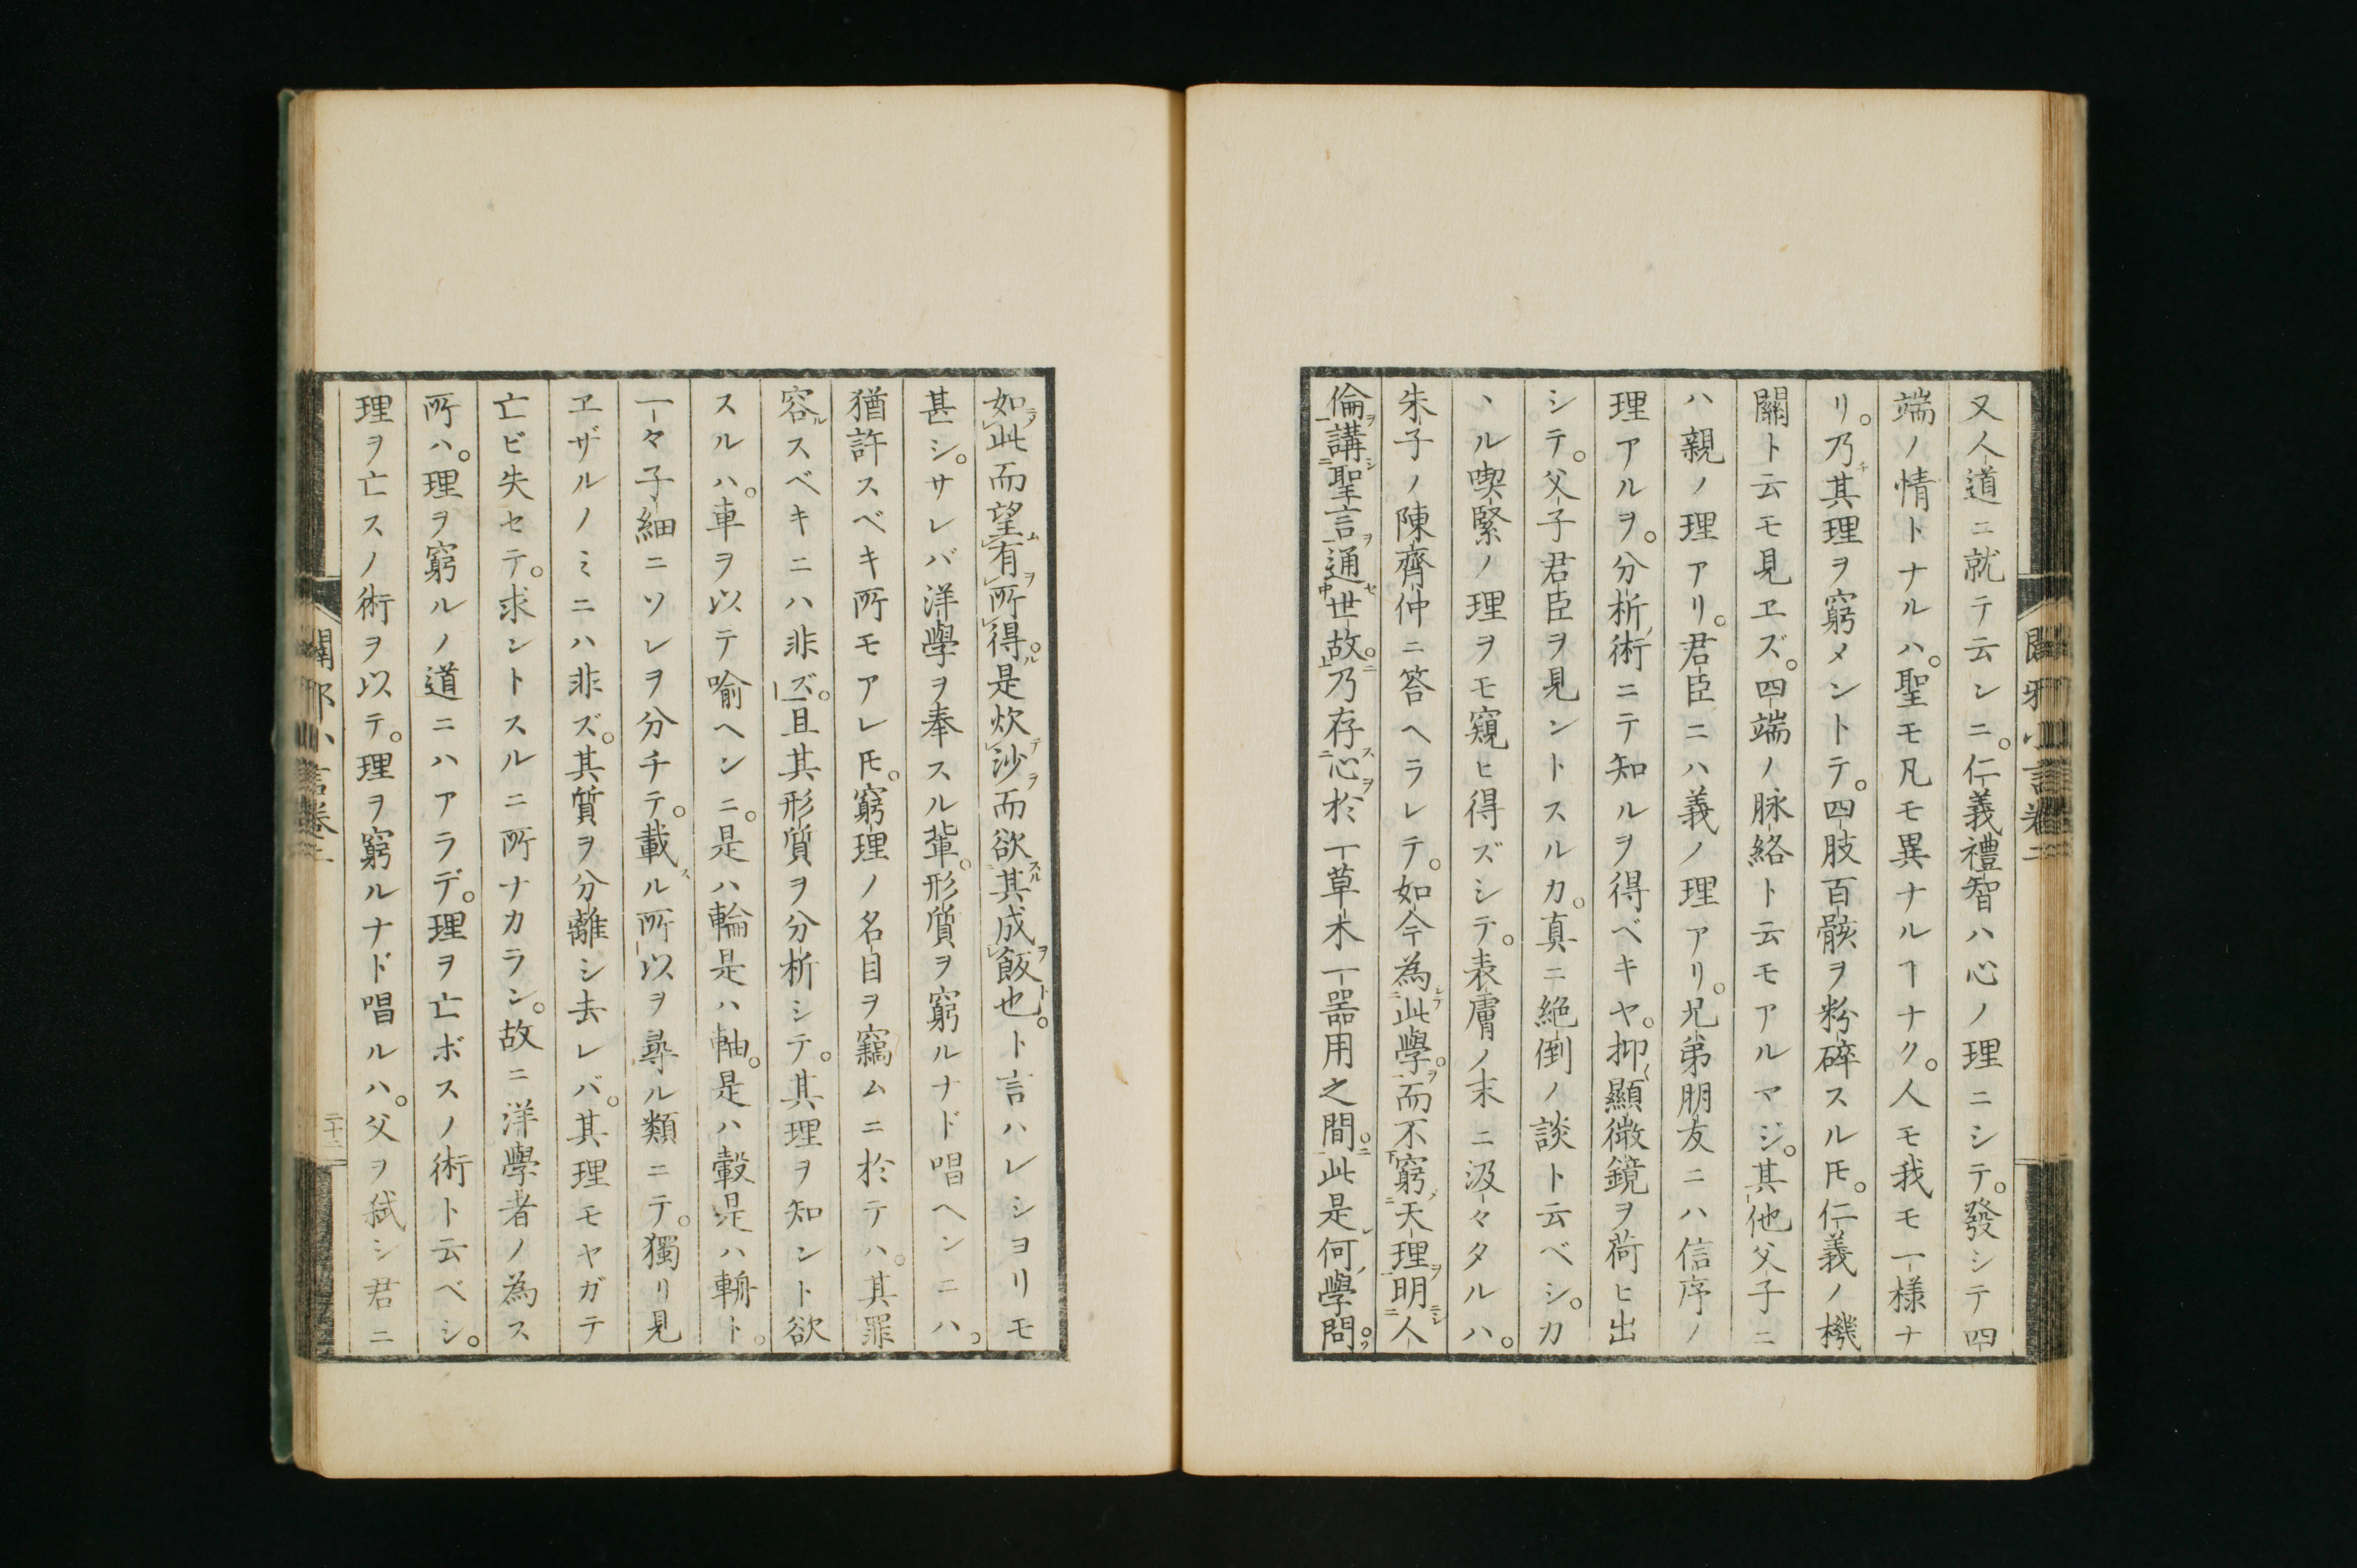 又人道ニ就テ云ンニ。仁義禮智ハ心ノ理ニシテ。發シテ四
端ノ情トナルハ。聖モ凡モ異ナルヿナク。人モ我モ一樣ナ
リ。乃チ其理ヲ窮メントテ。四肢百骸ヲ粉碎スルㇳモ。仁義ノ機
關ト云モ見ヱズ。四端ノ脉絡ト云モアルマジ。其他父子ニ
ハ親ノ理アリ。君臣ニハ義ノ理アリ。兄弟朋友ニハ信序ノ
理アルヲ。分析術ニテ知ルヲ得ベキヤ。抑顯微鏡ヲ荷ヒ出
シテ。父子君臣ヲ見ントスルカ。真ニ絶倒ノ談ト云ベシ。カ
ヽル喫緊ノ理ヲモ窺ヒ得ズシテ。表膚ノ末ニ汲々タルハ。
朱子ノ陳齊仲ニ答ヘラレテ。如今為此學。而不窮天理明人
倫講聖言通世故。乃存心於一草木一器用之間。此是何學問。
如此而望有所得。是炊沙而欲其成飯也。ト言ハレシヨリモ
甚シ。サレバ洋學ヲ奉スル輩。形質ヲ窮ルナド唱ヘンニハ。
猶許スベキ所モアレㇳモ。窮理ノ名目ヲ竊ムニ於テハ。其罪
容ルスベキニハ非ズ。且其形質ヲ分析シテ。其理ヲ知ント欲
スルハ。車ヲ以テ喻ヘンニ。是ハ輪是ハ軸。是ハ轂是ハ輈ト。
一々子細ニソレヲ分チテ。載スル所以ヲ尋ル類ニテ。獨リ見
ヱザルノミニハ非ズ。其質ヲ分離シ去レバ。其理モヤガテ
亡ビ失セテ。求ントスルニ所ナカラン。故ニ洋學者ノ為ス
所ハ。理ヲ窮ルノ道ニハアラデ。理ヲ亡ボスノ術ト云ベシ。
理ヲ亡スノ術ヲ以テ。理ヲ窮ルナド唱ルハ。父ヲ弑シ君ニ
闢邪小言卷二